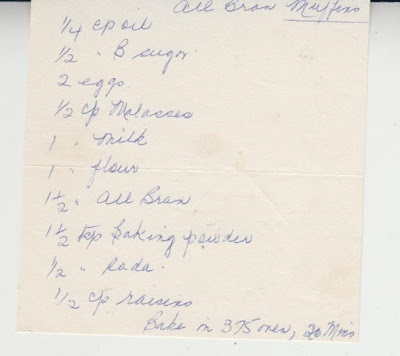 All Bran Muffins
1/4 cp oil
1/2 " B sugar
2 eggs
1/2 cp Molasses
1 " Milk
1 " flour
1 1/2 " All Bran
1 1/2 tsp Baking powder
1/2 " soda.
1/2 cp raisins
Bake in 375 oven, 20 Mins